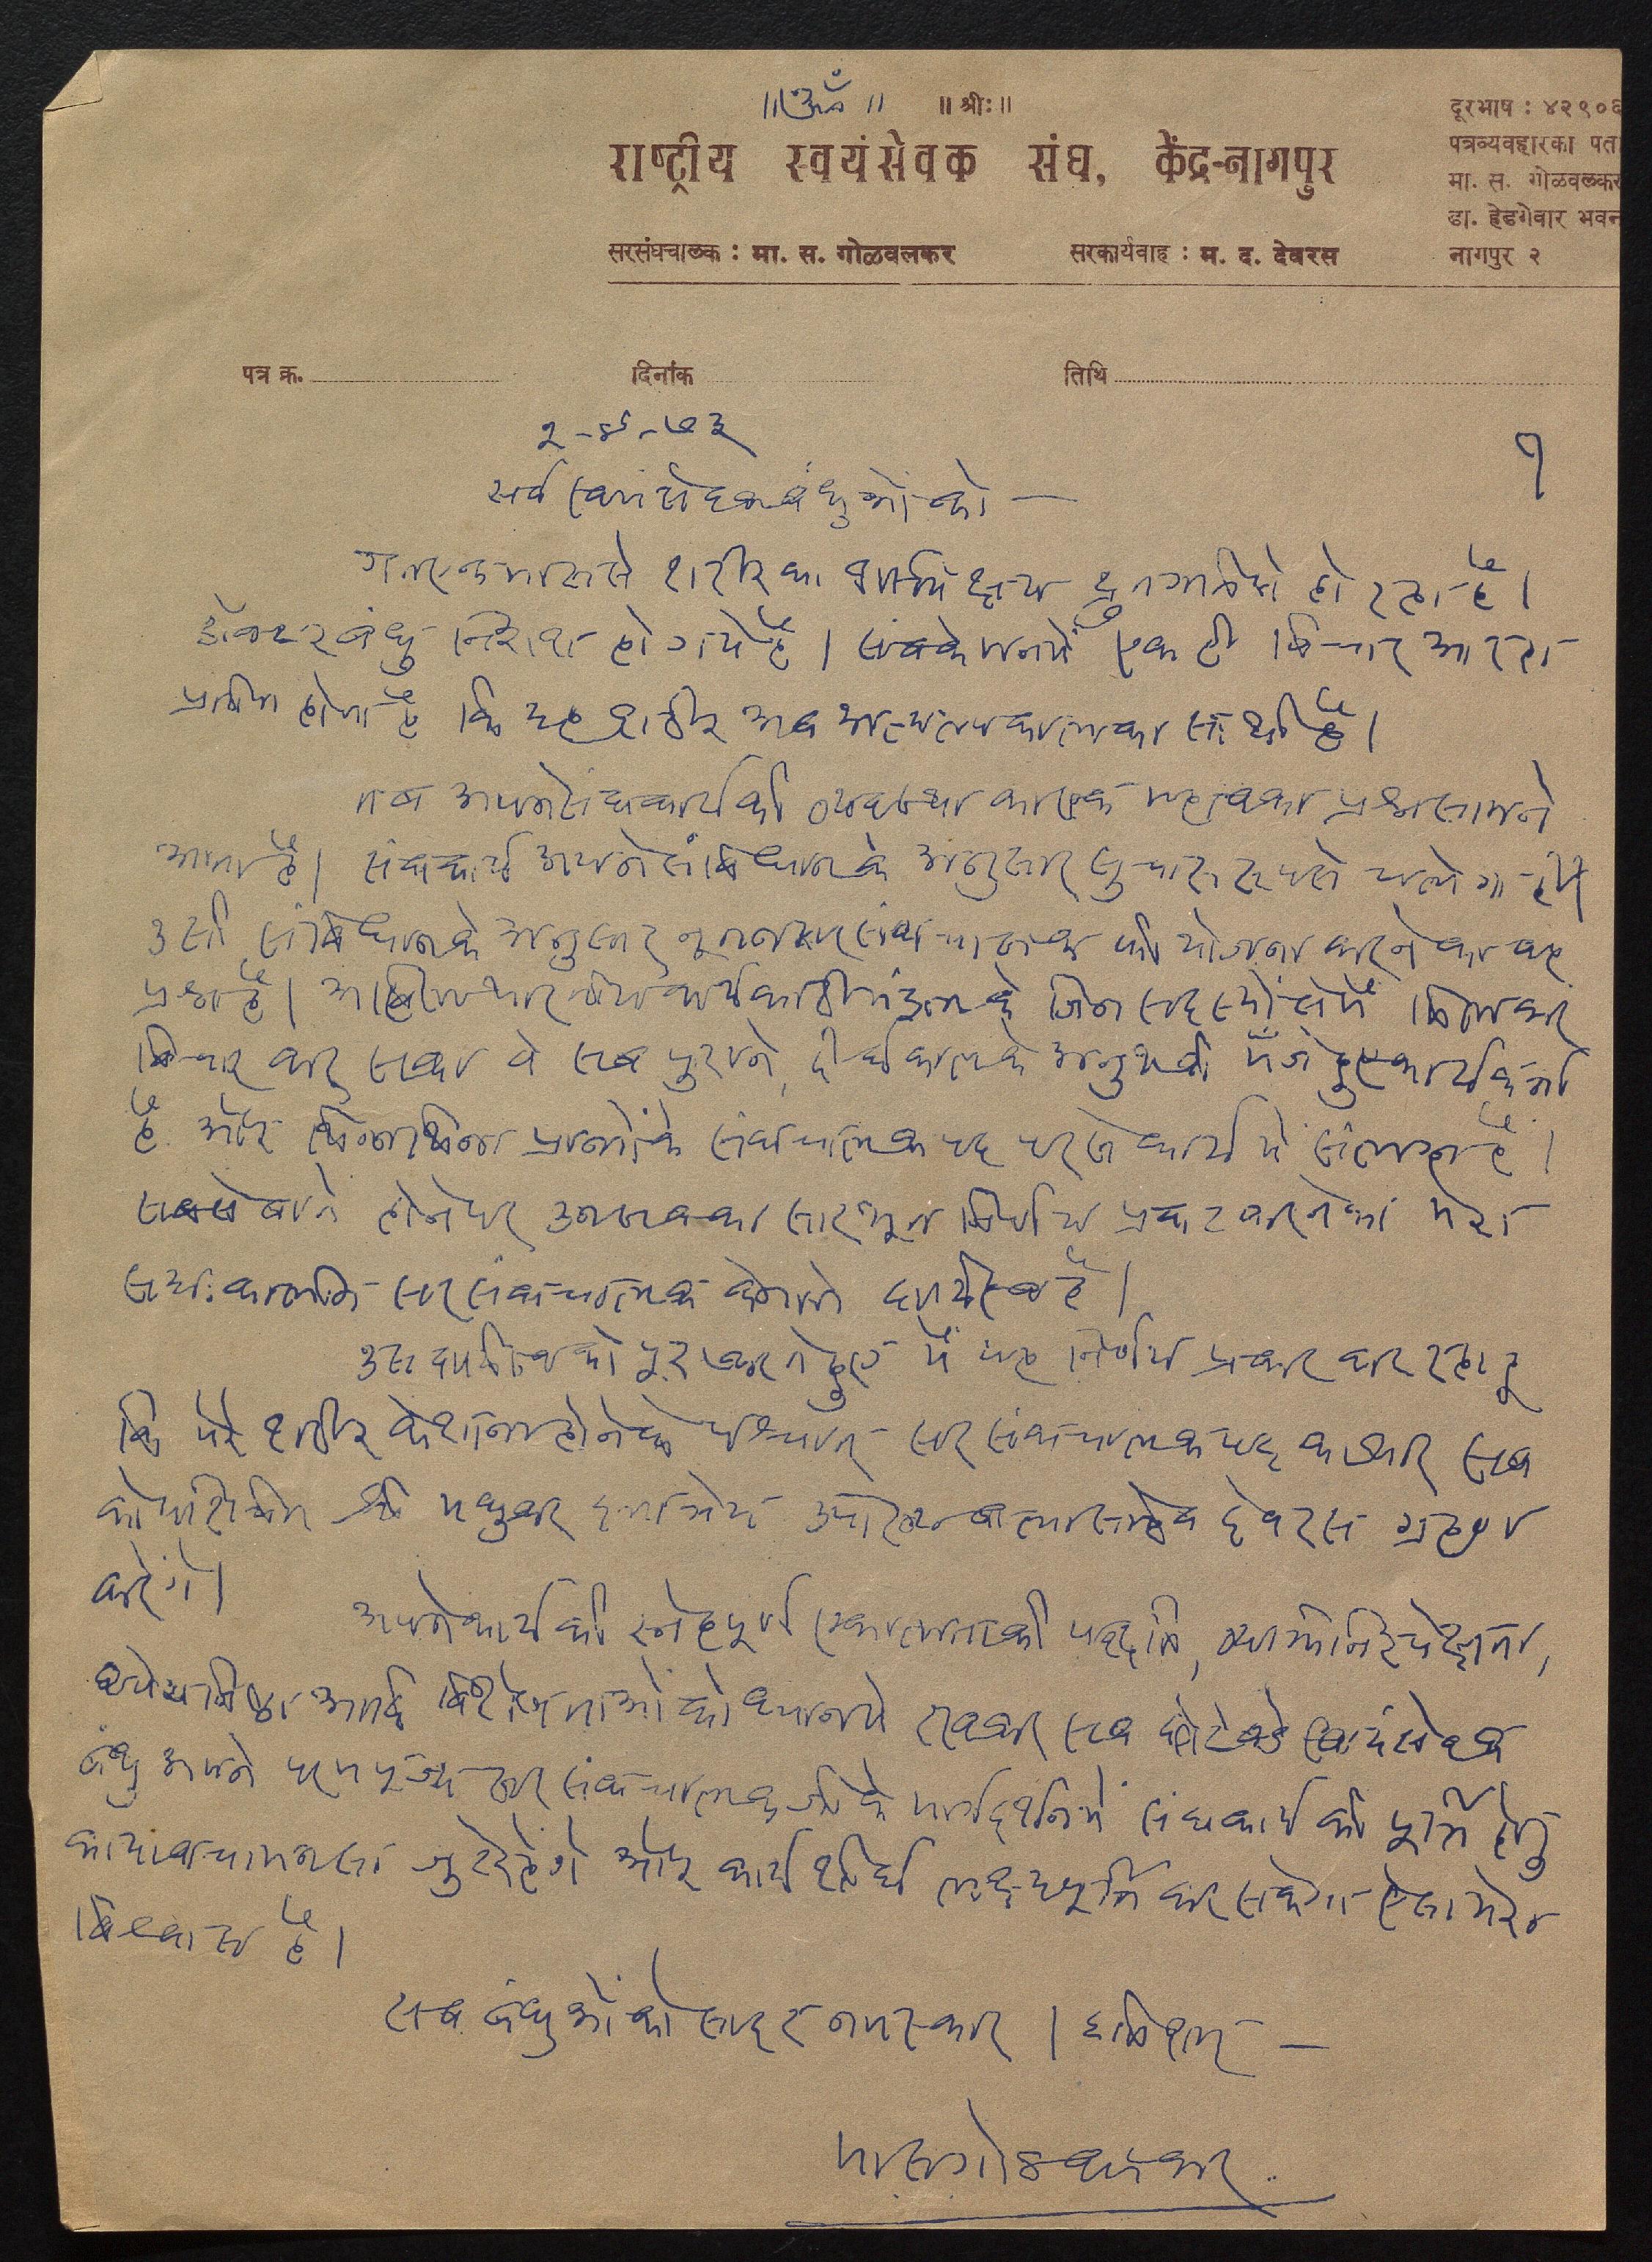 ॥ॐ॥ ॥ श्रीः॥
राष्ट्रीय स्वयंसेवक संघ, केंद्र-नागपुर
सरसंघचालक : मा. स. गोळवलकर सरकार्यवाह : म. द. देवरस
दूरभाष : ४२९०६
पत्रव्यवहारका पता
मा. स. गोळवलकर
डा. हेडगेवार भवन
नागपुर २
पत्र क्र. दिनांक तिथि
२-४-७३
१
सर्व स्वयंसेवक बंधुओंको —
गत एक माससे शरीरका क्षय द्रुतगतिसे हो रहा है।
डॉक्टर बंधु निराश हो गये हैं। सबके मनमें एक ही विचार आ रहा
प्रतीत होता है कि यह शरीर अब अत्यल्प कालका साथी है।
तब अपने संघकार्यकी व्यवस्था का एक महत्वका प्रश्न सामने
आता है। संघकार्य अपने संविधानके अनुसार सुचारु रूपसे चलेगा ही।
उसी संविधानके अनुसार नूतन सरसंघचालक की योजना करनेका यह
प्रश्न है। अखिल भारतीय कार्यकारी मंडलके जिन सदस्योंसे मैं मिलकर
विचार कर सका वे सब पुराने, दीर्घकालके अनुभवी मँजे हुए कार्यकर्ता
हैं और भिन्न भिन्न प्रान्तोंके संघचालक पद पर से कार्यमें संलग्न हैं।
सबसे बातें होनेपर उन सबका सारभूत निर्णय प्रकट करनेका मेरा
सद्यःकालीन सरसंघचालक के नाते दायित्व है।
उस दायित्वको पूरा करते हुए मैं यह निर्णय प्रकट कर रहा हूँ
कि मेरे शरीर के शान्त होनेके पश्चात् सरसंघचालक पद का भार सब
को परिचित श्री मधुकर दत्तात्रेय उपाख्य बालासाहेब देवरस ग्रहण
करेंगे।
अपने कार्यकी स्नेहपूर्ण एकात्मताकी पद्धति, व्यक्तिनिरपेक्षता,
ध्येयनिष्ठा आदि विशेषताओंको ध्यानमें रखकर सब छोटे बडे स्वयंसेवक
बंधु अपने परमपूज्य सरसंघचालकजीके मार्गदर्शनमें संघकार्य की पूर्ति हेतु
कायावाचामनसा जुटे रहेंगे और कार्य शीघ्र लक्ष्यपूर्ति कर सकेगा ऐसा मेरा
विश्वास है।
सब बंधुओंको सादर नमस्कार। इतिशम् —
मा. स. गोळवलकर